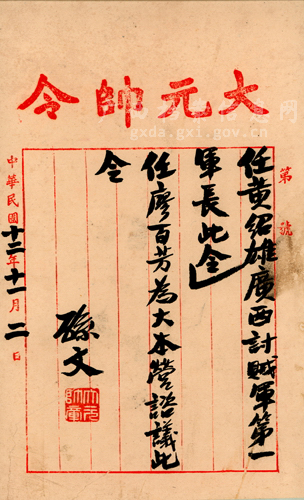 大元帥令
第 號
任黃紹雄廣西討賊軍第一
軍長此令
任廖百芳為大本營諮議此
令
孫文
大元帥章
中華民國十二年十一月二日
gxda.gxi.gov.cn